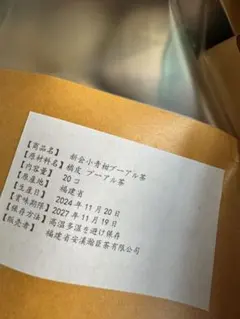 【商品名】 新会小青柑プーアル茶
【原材料名】橘皮 プーアル茶
【内容量】 20コ
【原産地】 福建省
【生産日】 2024年11月20日
【賞味期限】2027年11月19日
【保存方法】高温多湿を避け保存
【販売者】 福建省安溪瀚臣茶有限公司